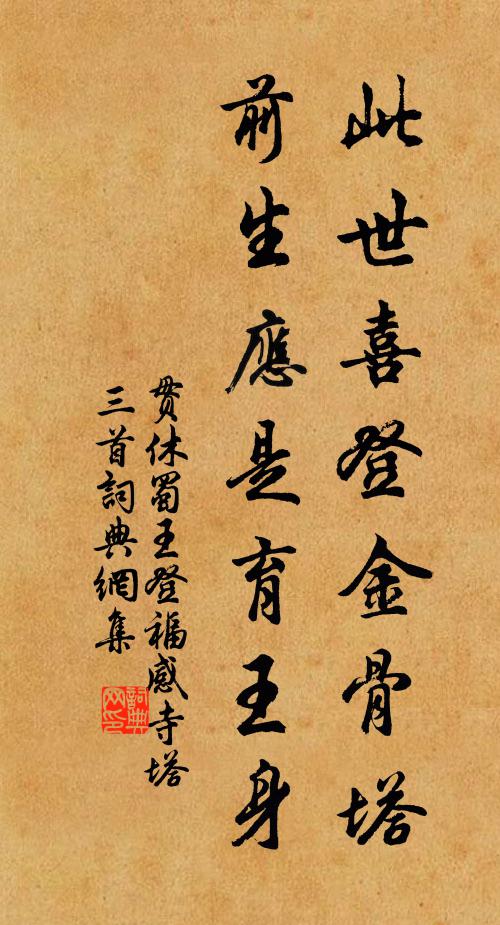 此世喜登金骨塔
前生應是育王身
贯休蜀王登福感寺塔
三首詞典網集
詞典
网印